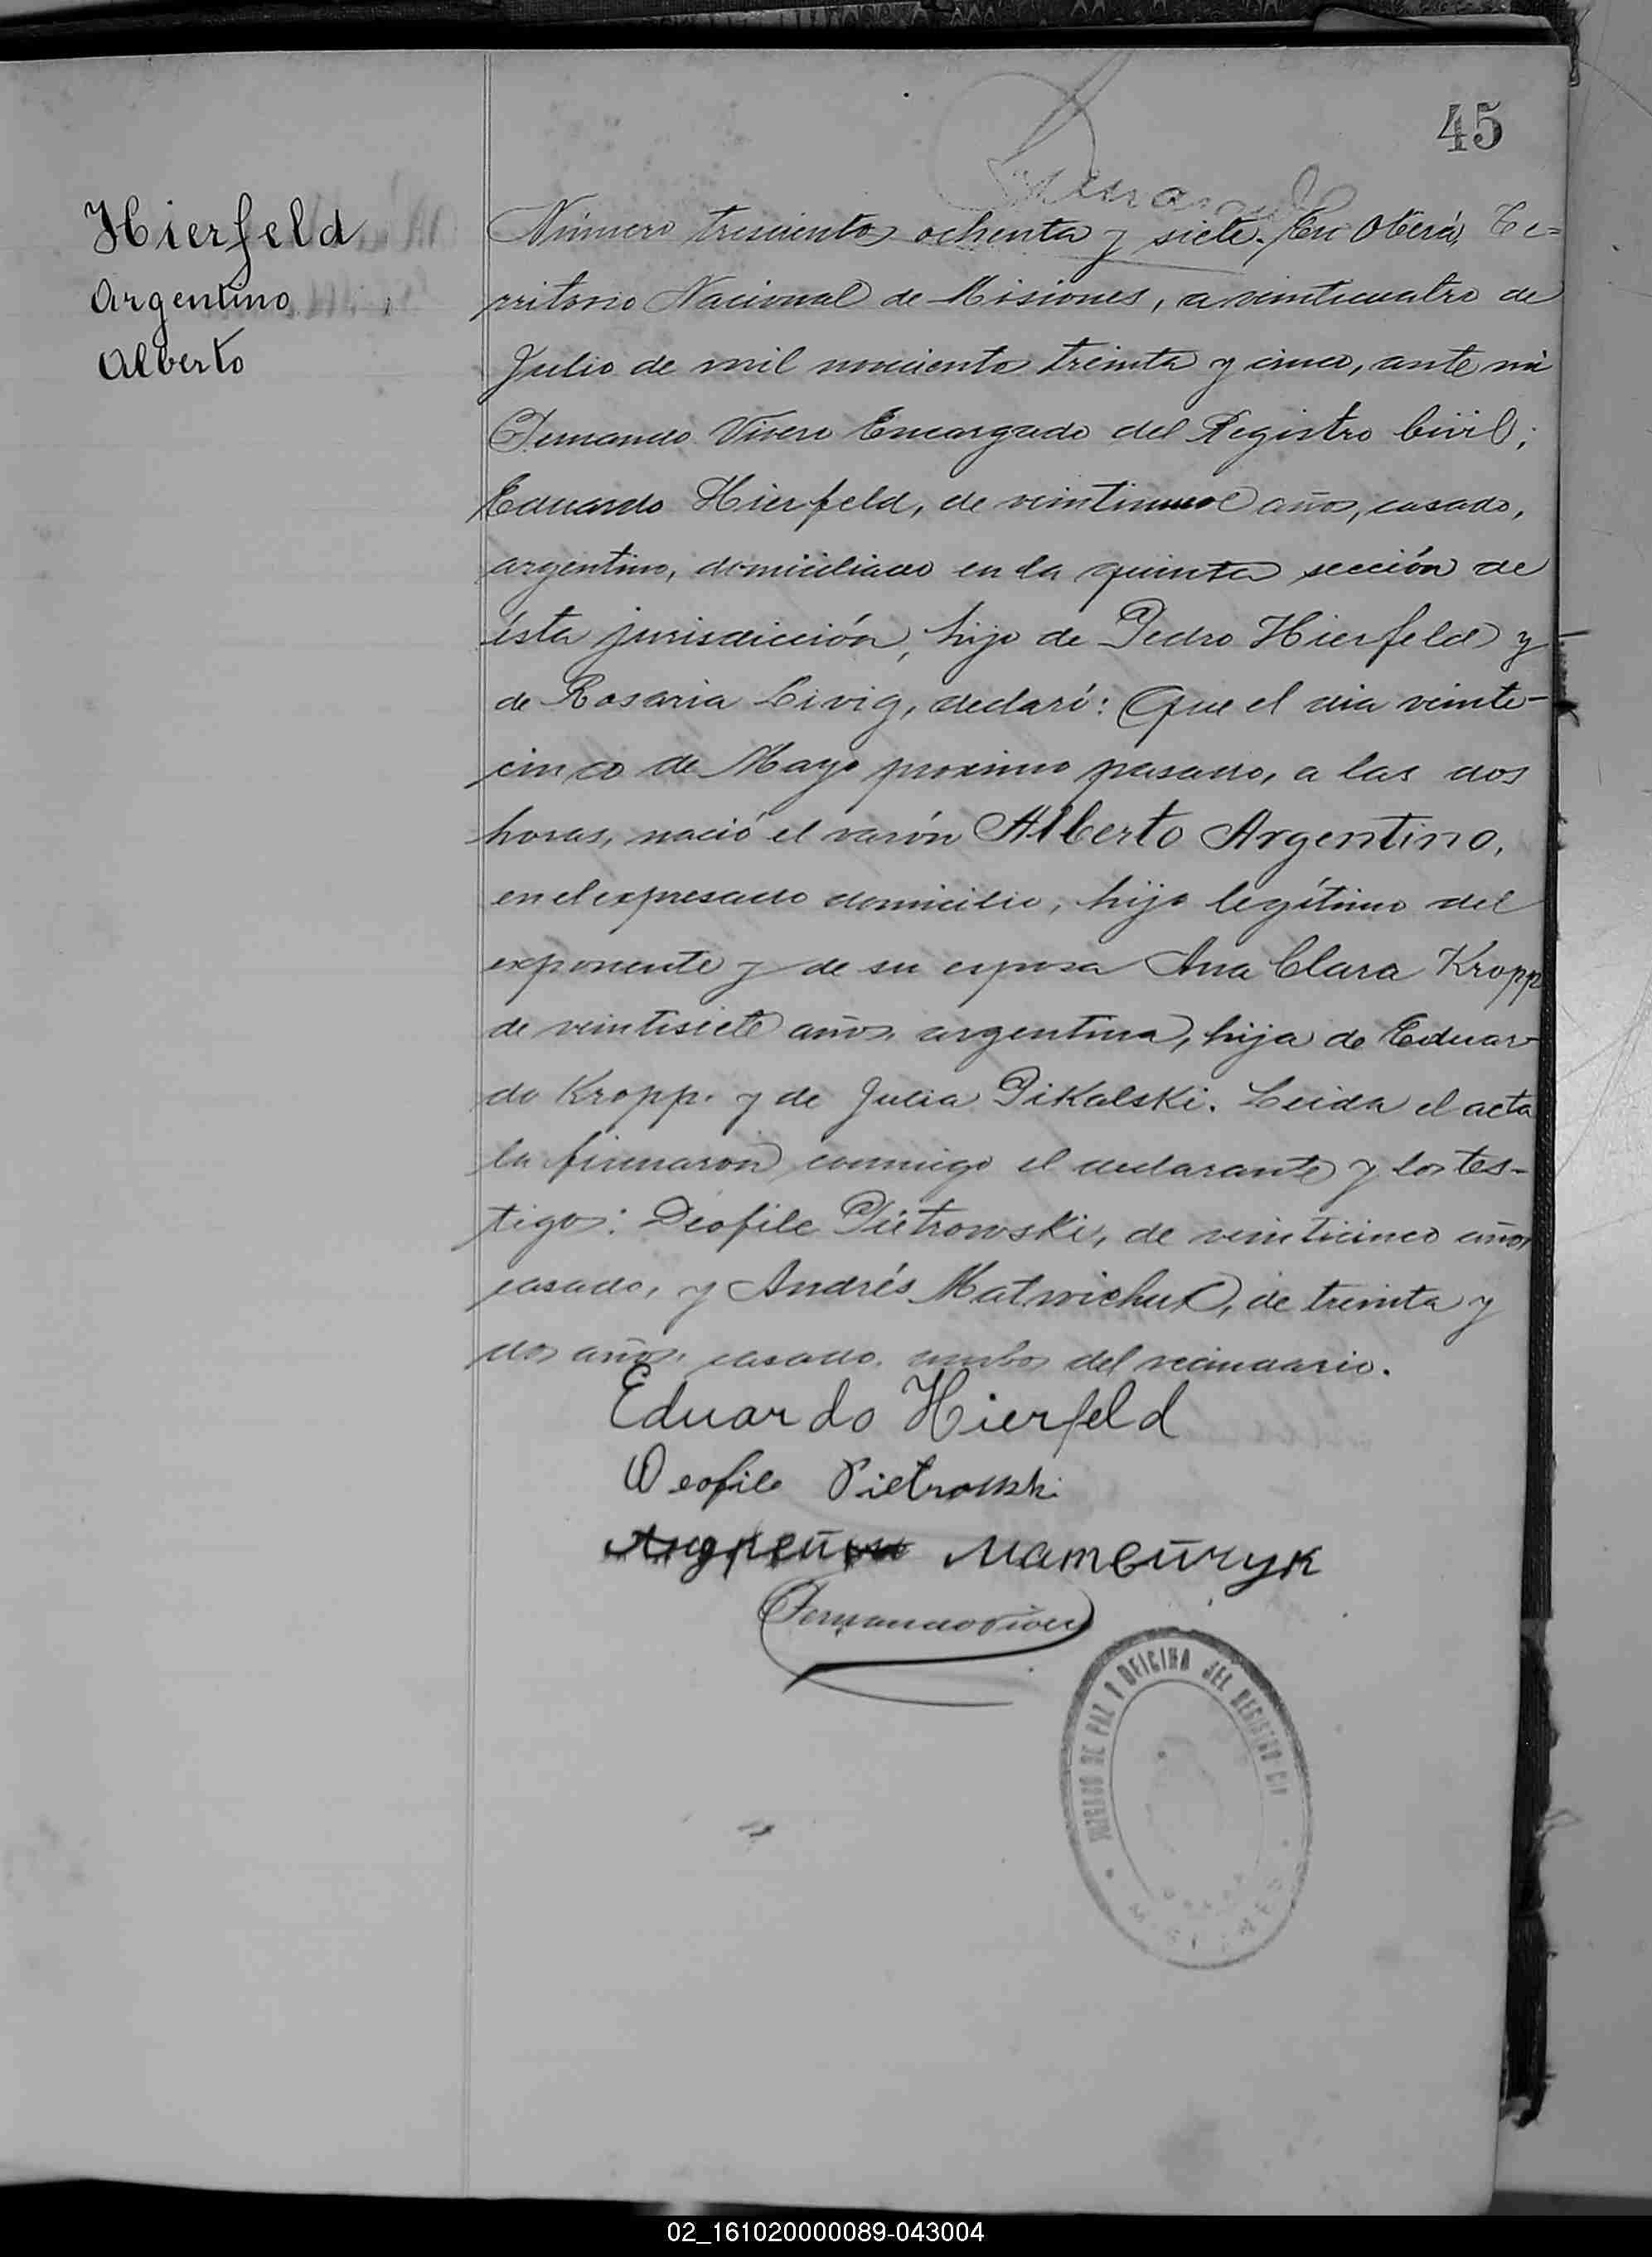 45
Hierfeld
Argentino
Alberto
Número trescientos ochenta y siete. En Oberá, Te=
rritorio Nacional de Misiones, a veinticuatro de
Julio de mil novecientos treinta y cinco, ante mi
Fernando Vivero Encargado del Registro Civil;
Eduardo Hierfeld, de años, casado,
argentino, domiciliado en la quinta sección de
ésta jurisdicción, hijo de Pedro Hierfeld y
de Rosaria Livig, declaró: Que el dia veinte-
cinco de Mayo proximo pasado, a las dos
horas, nació el varón Alberto Argentino,
en el expresado domicilio, hijo legítimo del
exponente y de su esposa Ana Clara Kropp
de veintisiete años, argentina, hija de Eduar-
do Kropp. y de Julia Pikalski. Leida el acta
la firmaron conmigo el declarante y los tes-
tigos: Deofile Pietrowski, de veinticinco años
casado, y Andrés Matwichuk, de treinta y
dos años, casado, ambos del vecindario.
Eduardo Hierfeld
Deofile Pietrowski
Матейчук
Fernando Vivero
JUZGADO DE PAZ Y OFICINA DEL REGISTRO CIVIL
MISIONES
02_161020000089-043004